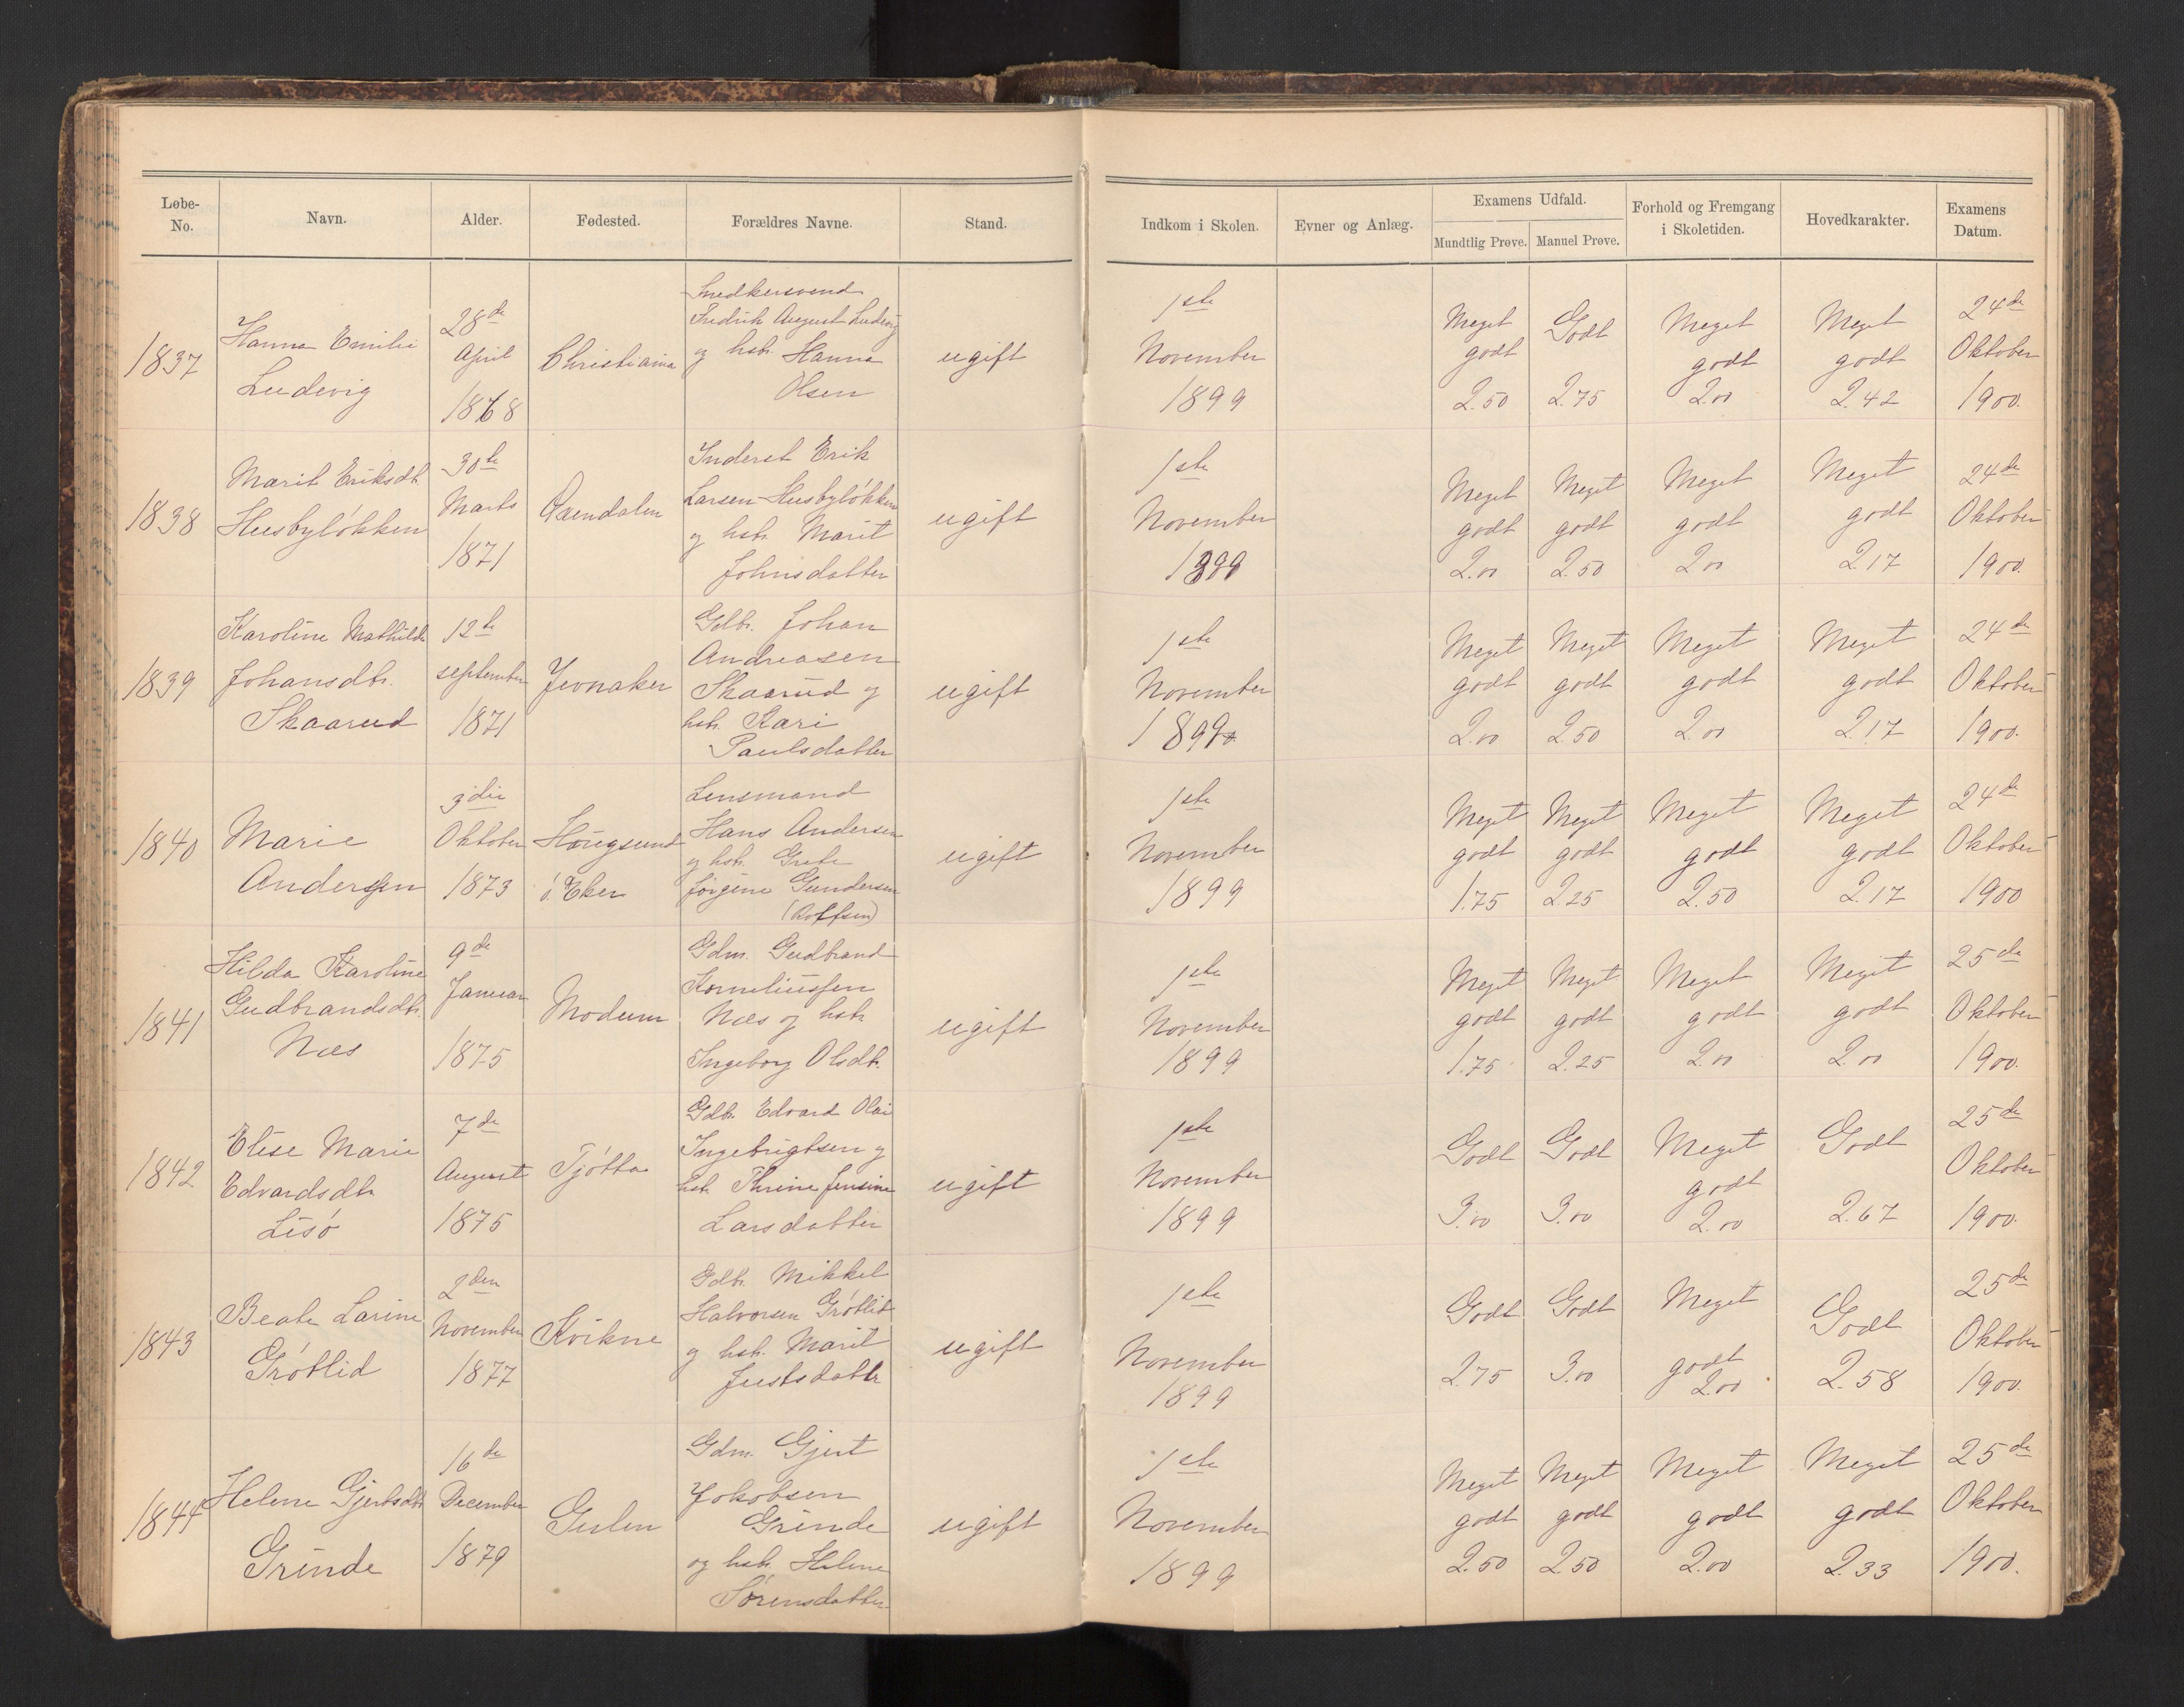 Løbe-
No.
Navn.
Alder.
Fødested.
Forældres Navne.
Stand.
Indkom i Skolen.
Evner og Anlæg.
Examens Udfald.
Mundtlig Prøve.
Manuel Prøve.
Forhold og Fremgang
i Skoletiden.
Hovedkarakter.
Examens
Datum.
1837
Hanna Emilie
Ludevig
28de
April
1868
Christiania
Snedkersvend
Fredrik August Ludevig
og hstr. Hanna
Olsen
ugift
1ste
November
1899
Meget
godt
2.50
Godt
2.75
Meget
godt
2.00
Meget
godt
2.42
24de
Oktober
1900.
1838
Marit Eriksdtr.
Husbyløkken
30te
Marts
1871
Inderst Erik
Larsen Husbyløkken
og hstr. Marit
Johnsdatter
ugift
1ste
November
1899
Meget
godt
2.00
Meget
godt
2.50
Meget
godt
2.00
Meget
godt
2.17
24de
Oktober
1900.
1839
Karoline Mathilde
Johansdtr.
Skaarud
12te
september
1871
Jevnaker
Gdbr. Johan
Andreasen
Skaarud og
hstr. Kari
Paulsdatter
ugift
1ste
November
1899
Meget
godt
2.00
Meget
godt
2.50
Meget
godt
2.00
Meget
godt
2.17
24de
Oktober
1900.
1840
Marie
Andersen
3die
Oktober
1873
Hougsund
i Eker
Lensmand
Hans Andersen
og hstr. Grete
Jørgine Gundersen
ugift
1ste
November
1899
Meget
godt
1.75
Meget
godt
2.25
Meget
godt
2.50
Meget
godt
2.17
24de
Oktober
1900
1841
Hilda Karoline
Gudbrandsdtr.
Næs
9de
Januar
1875
Modum
Gdm. Gudbrand
Korneliussen
Næs og hstr.
Ingeborg Olsdtr.
ugift
1ste
November
1899
Meget
godt
1.75
Meget
godt
2.25
Meget
godt
2.00
Meget
godt
2.00
25de
Oktober
1900.
1842
Elise Marie
Edvardsdtr.
Lisø
7de
August
1875
Tjøtta
Gdbr. Edvard Olai
Ingebrigtsen og
hstr. Thrine Jensine
Larsdatter
ugift
1ste
November
1899
Godt
3.00
Godt
3.00
Meget
godt
2.00
Godt
2.67
25de
Oktober
1900.
1843
Beate Larine
Grøtlid
2den
November
1877
Kvikne
Gdbr. Mikkel
Halvorsen Grøtlid
og hstr. Marit
Justsdattr
ugift
1ste
November
1899
Godt
2.75
Godt
3.00
Meget
godt
2.00
Godt
2.58
25de
Oktober
1900.
1844
Helene Gjertsdtr.
Grinde
16de
December
1879
Gulen
Gdm. Gjert
Jakobsen
Grinde
og hstr. Helene
Sørensdatter
ugift
1ste
November
1899
Meget
godt
2.50
Meget
godt
2.50
Meget
godt
2.00
Meget
godt
2.33
25de
Oktober
1900.